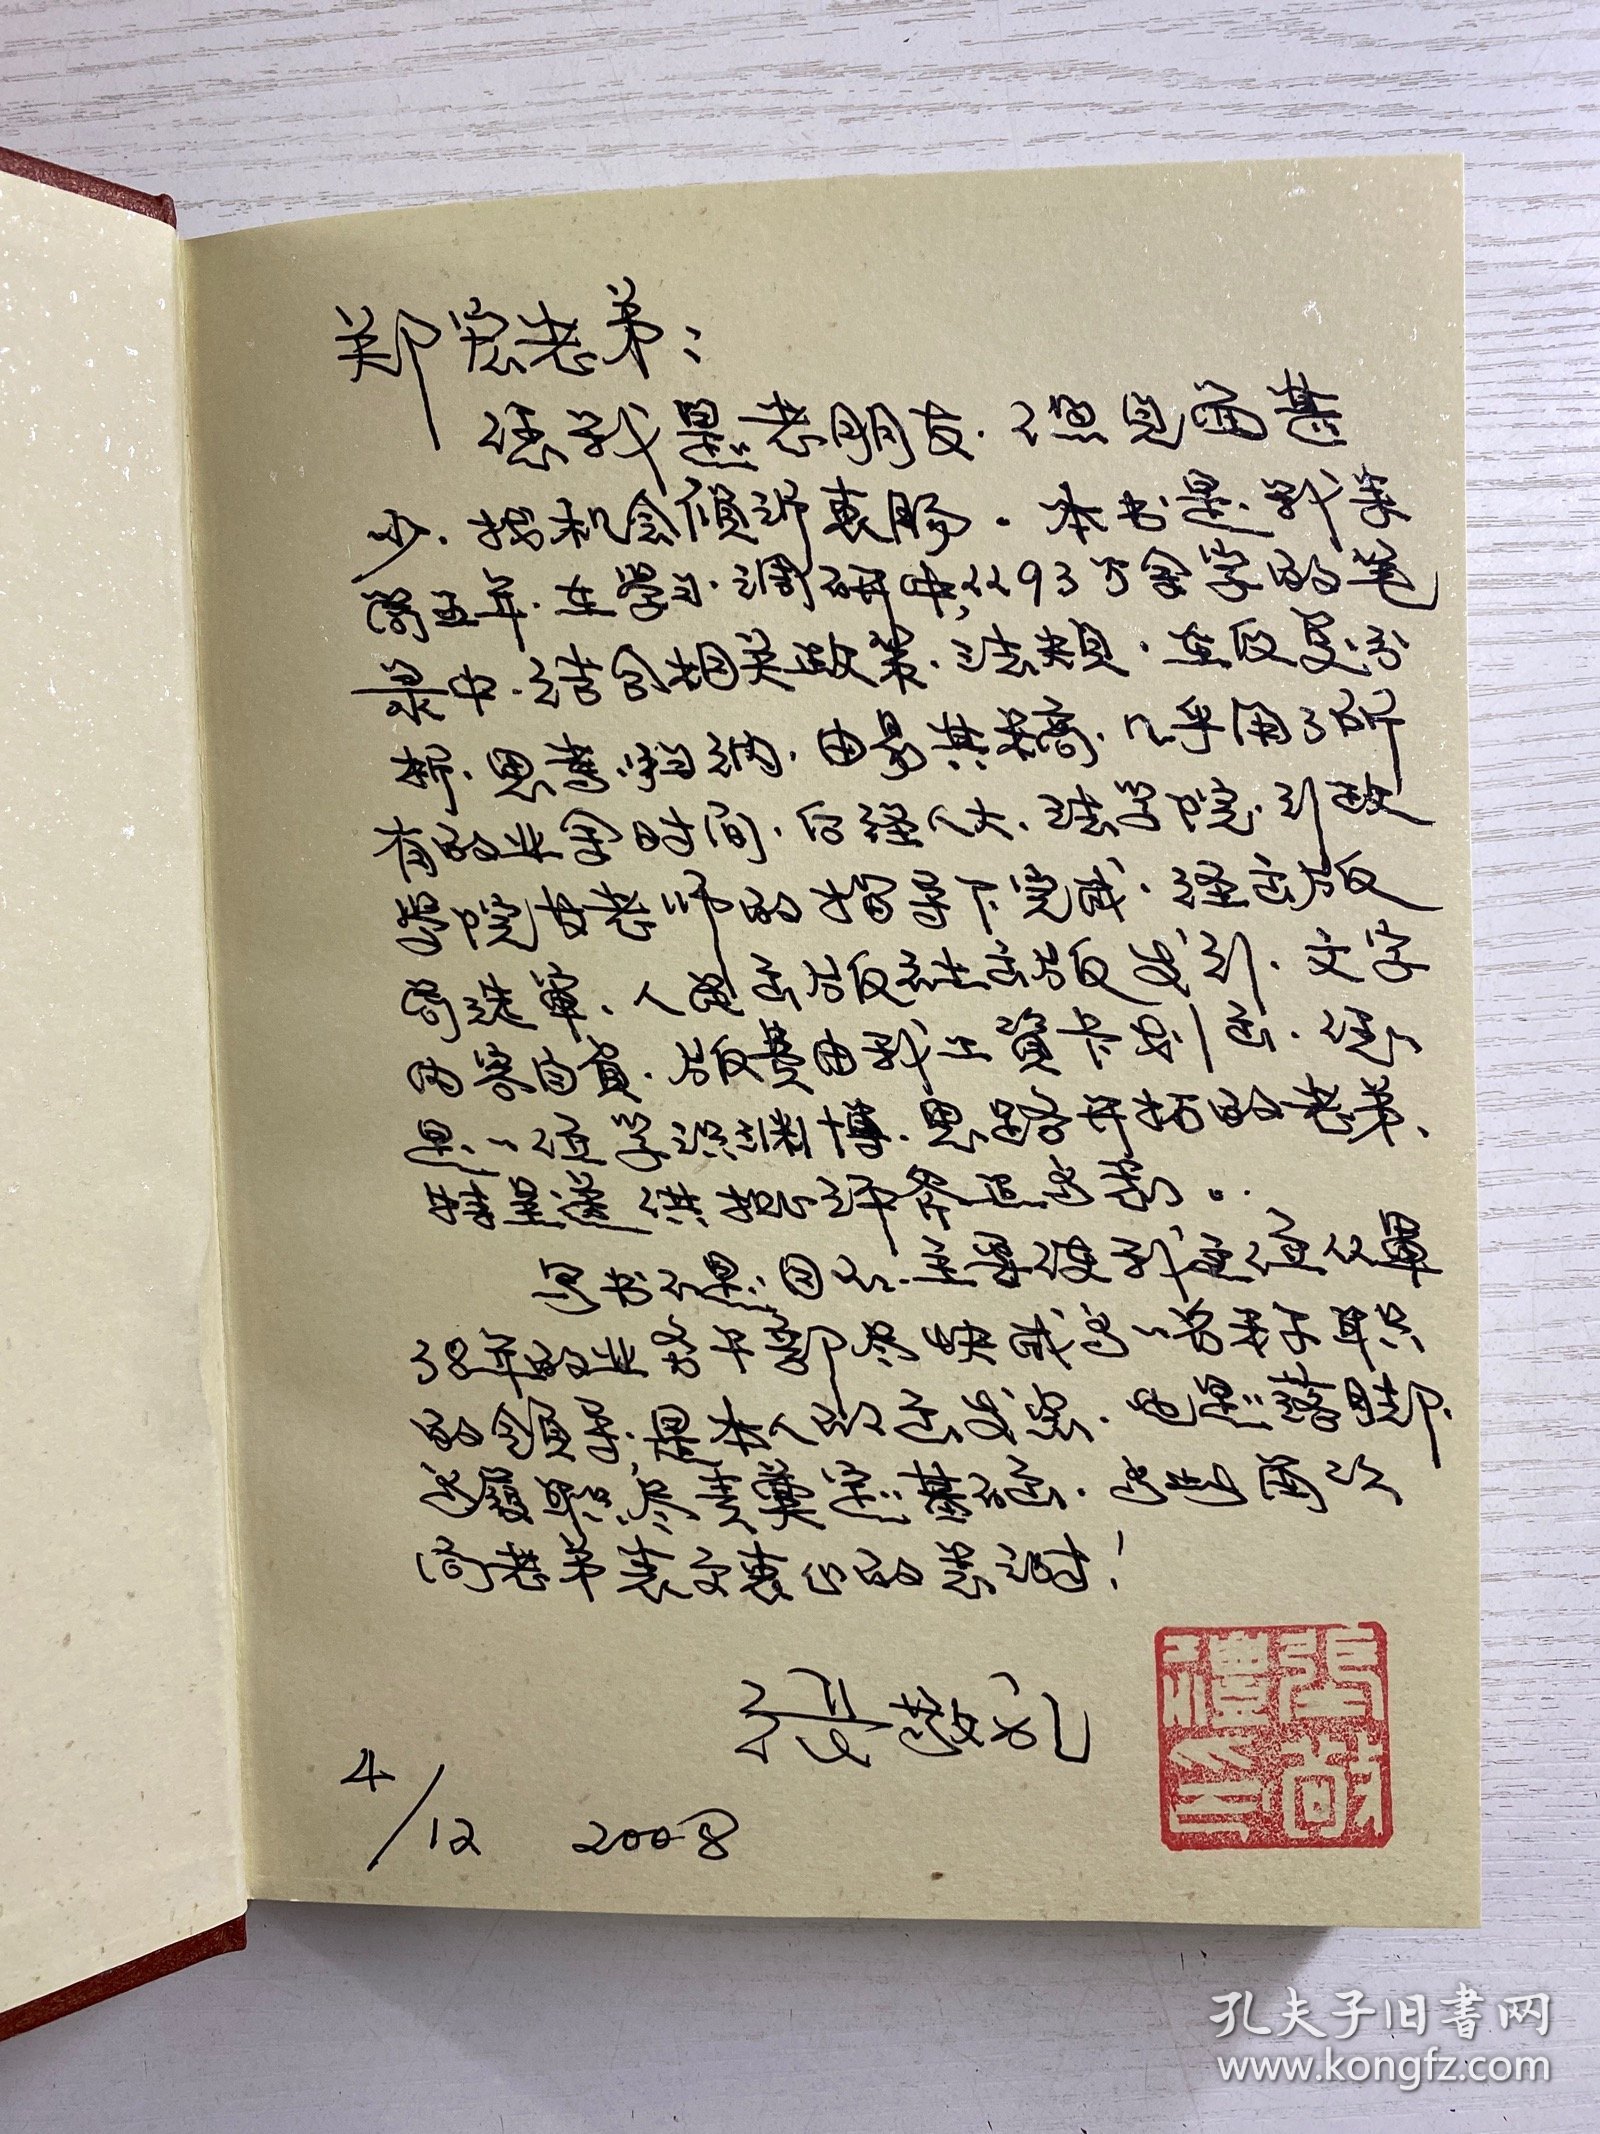 郑宏老弟：
您我是老朋友.但见面甚
少.找机会倾诉衷肠。本书是我来
京五年.在学习.调研中,从93万余字的笔
录中.结合相关政策.法规.在反复分
析.思考.归纳.由易其稿.几乎用了所
有的业余时间.后经人大.法学院.行政
学院女老师的指导下完成.经出版
局选审.人民出版社出版发行.文字
内容自负.版费由我工资卡划出.您
是一位学识渊博.思路开拓的老弟、
特呈送供批评斧正当哥。
写书不是目的.主要使我这位从军
38年的业务干部尽快成为一名称职
的领导,是本人的出发点.也是落脚.
为履职尽责奠定基础.当此再次
向老弟表究衷心的感谢!
张敬礼
4/12 2008
孔夫子旧书网
www.kongfz.com